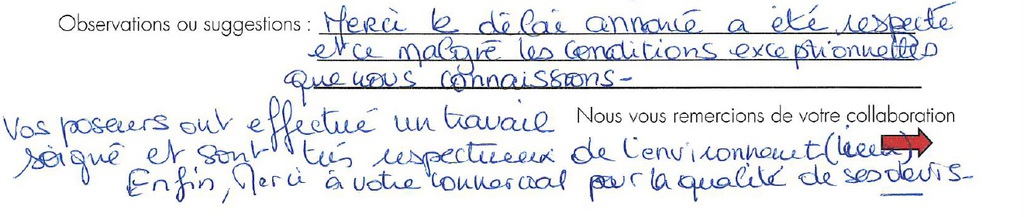 Observations ou suggestions : Merci le délai annoncé a été respecté
et ce malgré les conditions exceptionnelles
que nous connaissons -
Vos poseurs ont effectué un travail
Nous vous remercions de votre collaboration
soigné et sont très respectueux de l'environnement (lieux).
Enfin, Merci à votre commercial pour la qualité de ses devis -